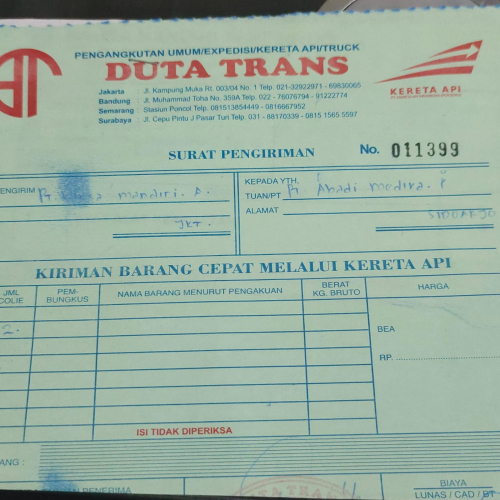 PENGANGKUTAN UMUM/EXPEDISI/KERETA API/TRUCK
DUTA TRANS
Jakarta : Jl. Kampung Muka Rt. 003/04 No. 1 Telp. 021-32922971 - 69830065
Bandung : Jl. Muhammad Toha No. 359A Telp. 022 - 76076794 - 91222774
Semarang : Stasiun Poncol Telp. 081513854449 - 0816667952
Surabaya : Jl. Cepu Pintu J Pasar Turi Telp. 031 - 88170339 - 0815 1565 5597
KERETA API
SURAT PENGIRIMAN No. 011399
ENGIRIM Pt. mandiri. A.
JKT.
KEPADA YTH.
TUAN/PT Pt. Abadi medika. P
ALAMAT SIDOARJO
KIRIMAN BARANG CEPAT MELALUI KERETA API
JML COLIE
PEM-BUNGKUS
NAMA BARANG MENURUT PENGAKUAN
BERAT KG. BRUTO
HARGA
2.
BEA
RP.
ISI TIDAK DIPERIKSA
ANG :
PENERIMA
BIAYA
LUNAS / CAD / BT